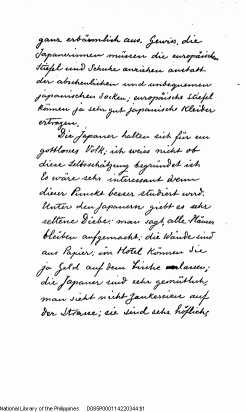 ganz erbärmlich aus. Gewiss, die
Japanerinnen müssen die europäische
Stiefel und Schuhe anziehen anstatt
der abscheulichen und unbequemen
japanischen Socken; europäische Stiefel
können ja sehr gut japanische Kleider
ertragen.
Die Japaner halten sich für ein
gottloses Volk; ich weiss nicht ob
diese Selbstschätzung begründet ist.
Es wäre sehr interessant wenn
dieser Punkt besser studiert wird.
Unter den Japanern giebt es sehr
seltene Diebe: man sagt, alle Häuser
bleiben aufgemacht; die Wände sind
aus Papier; im Hotel können Sie
ja Geld auf dem Tische lassen;
die Japaner sind sehr gemütlich;
man sieht nicht Zankereien auf
der Strasse; sie sind sehr höflich,
National Library of the Philippines